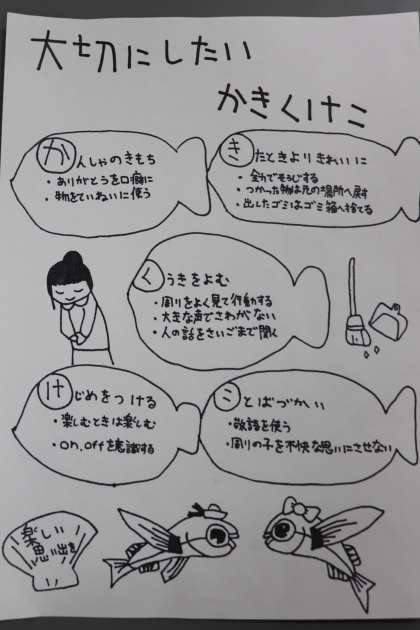 大切にしたい
かきくけこ
かんしゃのきもち
・ありがとうを口癖に
・物をていねいに使う
きたときよりきれいに
・全力でそうじする
・つかった物は元の場所へ戻す
・出したゴミはゴミ箱へ捨てる
くうきをよむ
・周りをよく見て行動する
・大きな声でさわがない
・人の話をさいごまで聞く
けじめをつける
・楽しむときは楽しむ
・on,offを意識する
ことばづかい
・敬語を使う
・周りの子を不快な思いにさせない
楽しい
思い出を